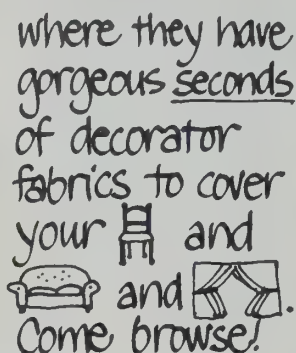 where they have
gorgeous seconds
of decorator
fabrics to cover
your and
and .
Come browse!